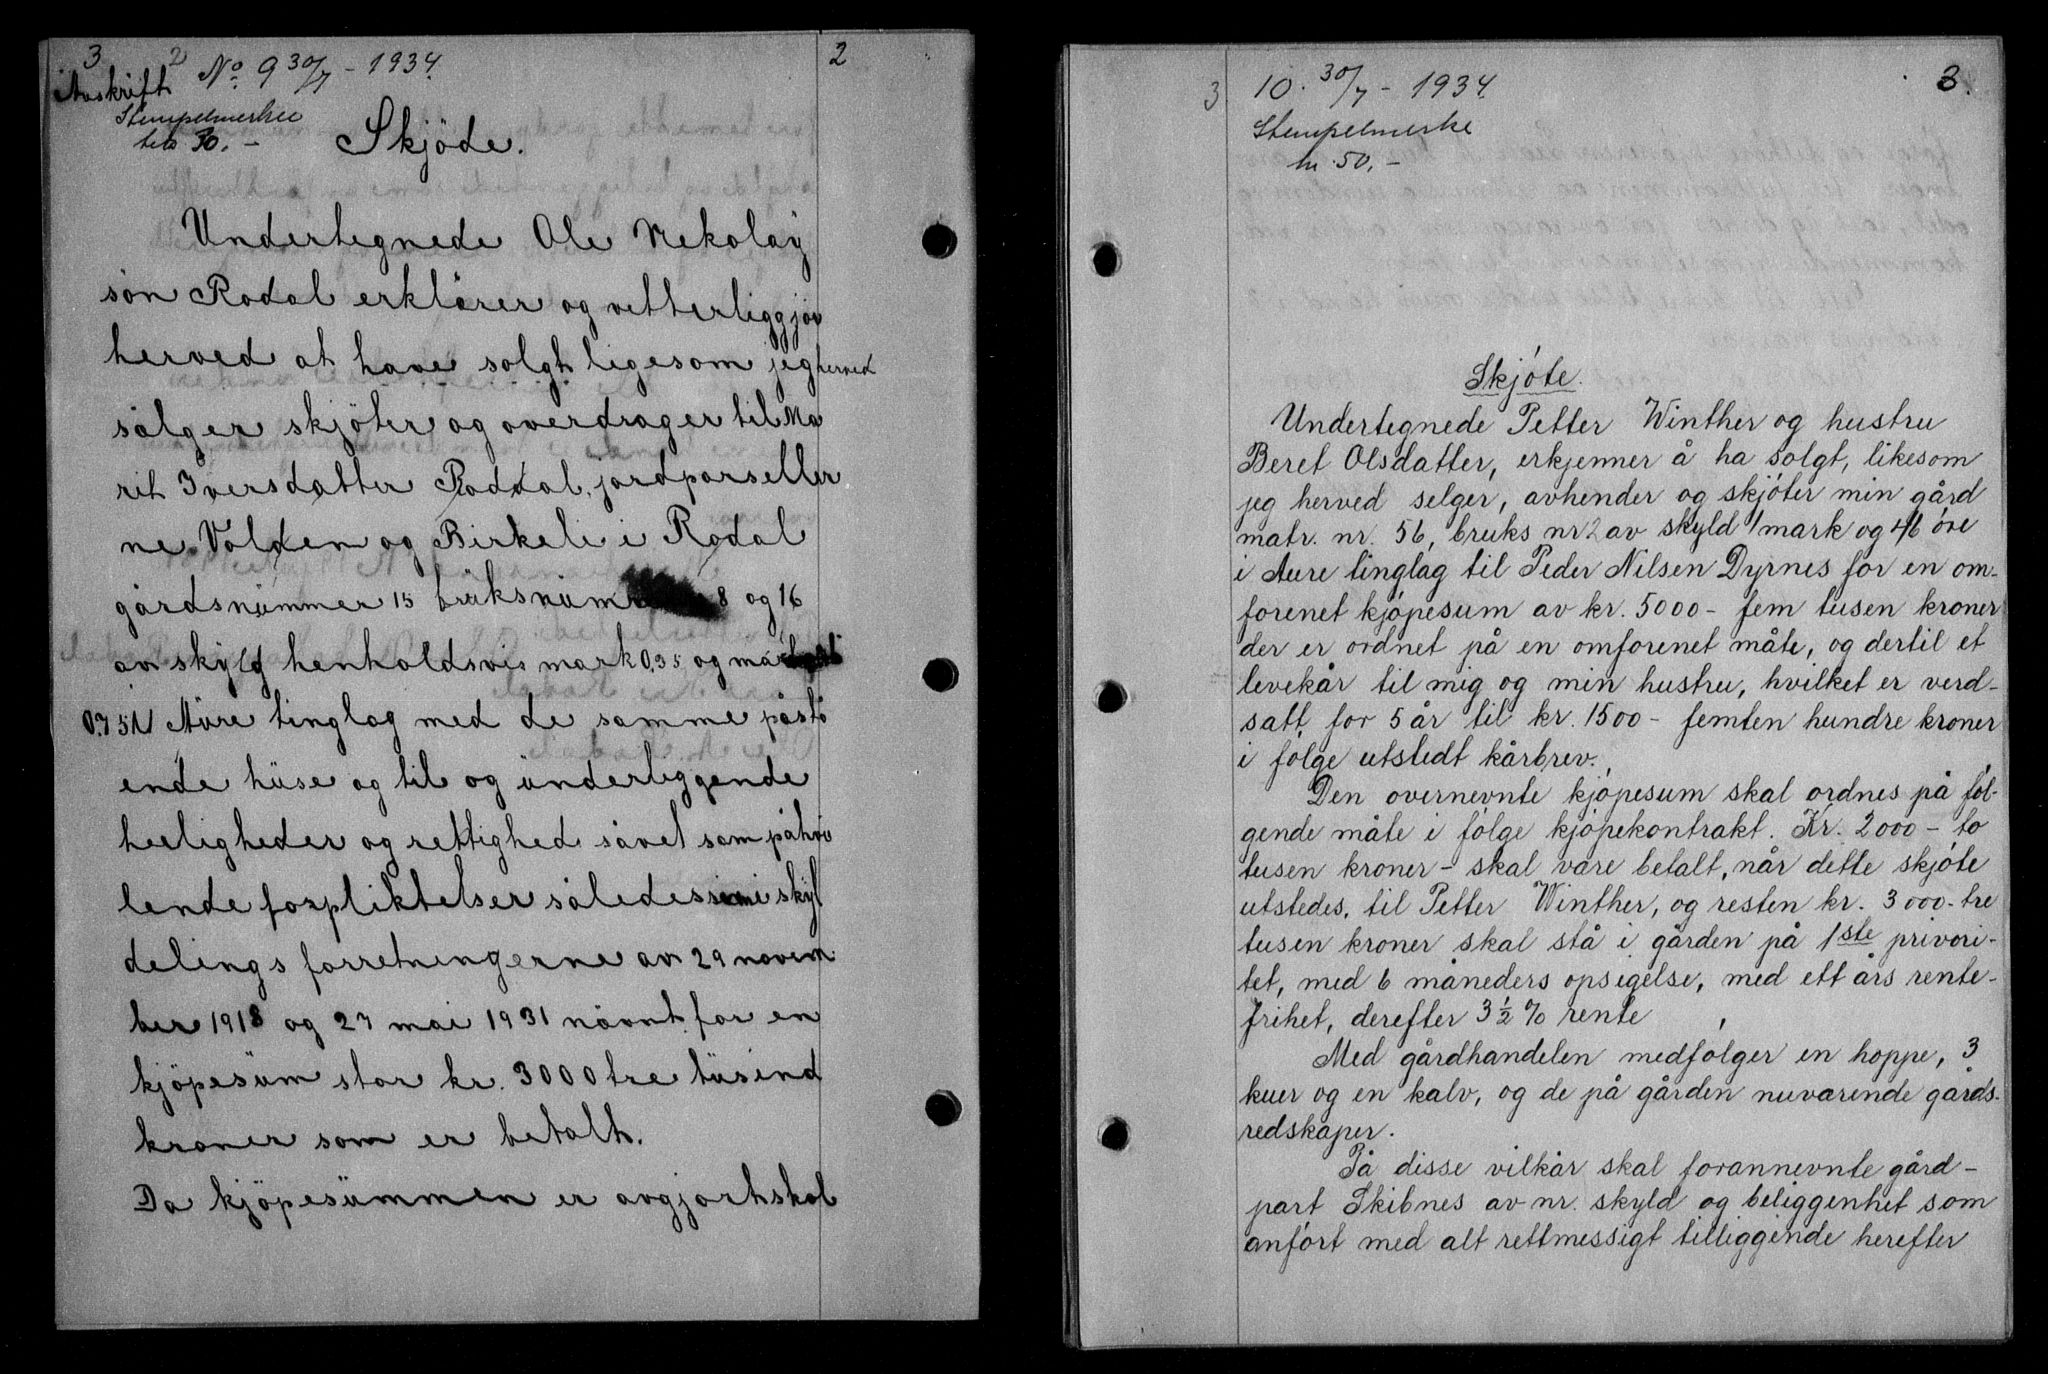 3 2 2
No 9 30/7 - 1934
Avskrift
Stempelmerke
30.-
Skjöde.
Undertegnede Ole Nekolay
sön Rodal erklärer og vetterliggjör
herved at have solgt ligesom jeg herved
sälger skjöter og overdrager til Ma
rit Iversdatter Roddal jordparseller
ne Volden og Birkeli i Rodal
gårdsnümmer 15 brüksnüm 8 og 16
av skyld henholdsvis mark 0,35 og
0.75 i Aüre tinglag med de samme påstå
ende hüse og til og ünderliggende
herligheder og rettighed såvel som påhvi
lende forpliktelser således som i skyl
delings forretningerne av 29 novem
ber 1918 og 27 mai 1931 nävnt for en
kjöpesüm stor kr. 3000 tre tüsind
kroner som er betalt.
Da kjöpesümmen er avgjort skal
3 3.
10. 30/7 - 1934.
Stempelmerke
kr. 50.-
Skjóte.
Undertegnede Petter Winther og hustru
Beret Olsdatter, erkjenner å ha solgt, likesom
jeg herved selger, avhender og skjóter min gård
matr. nr. 56, bruks nr 2 av skyld 1 mark og 46 óre
i Aure tinglag til Peder Nilsen Dyrnes for en om-
forenet kjópesum av kr. 5000 - fem tusen kroner
der er ordnet på en omforenet måte, og dertil et
levekår til mig og min hustru, hvilket er verd-
satt for 5 år til kr. 1500 - femten hundre kroner
i fólge utstedt kårbrev.
Den overnevnte kjópesum skal ordnes på fól-
gende måte i fólge kjópekontrakt. Kr. 2000 - to
tusen kroner - skal være betalt, når dette skjóte
utstedes, til Petter Winther, og resten kr. 3000 - tre
tusen kroner skal stå i gården på 1ste privori-
tet, med 6 måneders opsigelse, med ett års rente-
frihet, derefter 3 1/2 % rente
Med gårdhandelen medfólger en hoppe, 3
kuer og en kalv, og de på gården nuværende gårds-
redskaper.
På disse vilkår skal forannevnte gård-
part Skibnes av nr. skyld og beliggenhet som
anfórt med alt rettmessigt tilliggende herefter